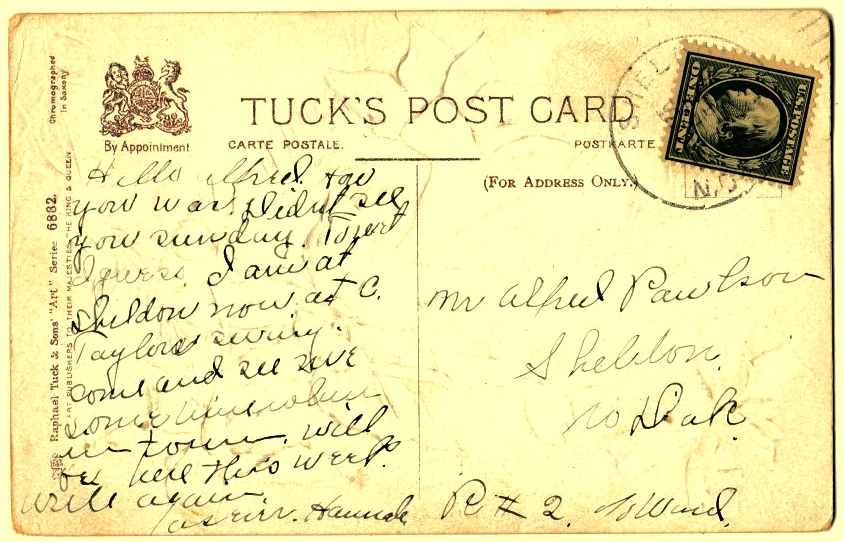 Chromographed
in Saxony
By Appointment
TUCK'S POST CARD
CARTE POSTALE.
POSTKARTE
(FOR ADDRESS ONLY.)
Raphael Tuck & Sons' "Art" Series 6882.
ART PUBLISHERS TO THEIR MAJESTIES THE KING & QUEEN
SHEL
N.D.
U.S. POSTAGE
Hello Alfred how
you was. Didnt see
you sunday.
I guess. I am at
Sheldon now at C.
Taylors sewing.
come and see
some time when
in town. will
be here this week
will again
Hannah
Mr Alfred Paulson
Sheldon
No Dak.
R # 2.